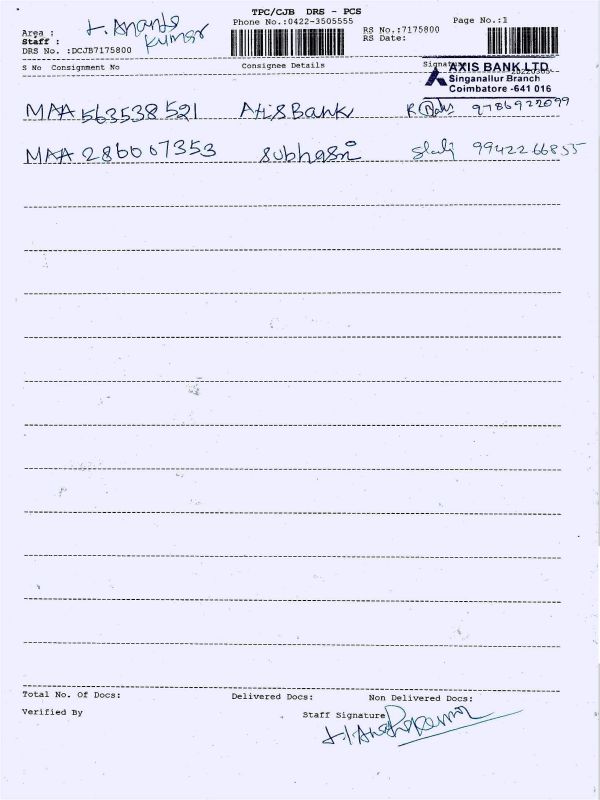 TPC/CJB DRS - PCS
Phone No.:0422-3505555
Page No.:1
Area :
Staff :
DRS No. :DCJB7175800
RS No.:7175800
RS Date:
S No Consignment No Consignee Details
AXIS BANK LTD
Singanallur Branch
Coimbatore -641 016
MAA 563538521 AtisBank 9786922099
MAA 286607353 subhasni 9942266855
Total No. Of Docs: Delivered Docs: Non Delivered Docs:
Verified By Staff Signature